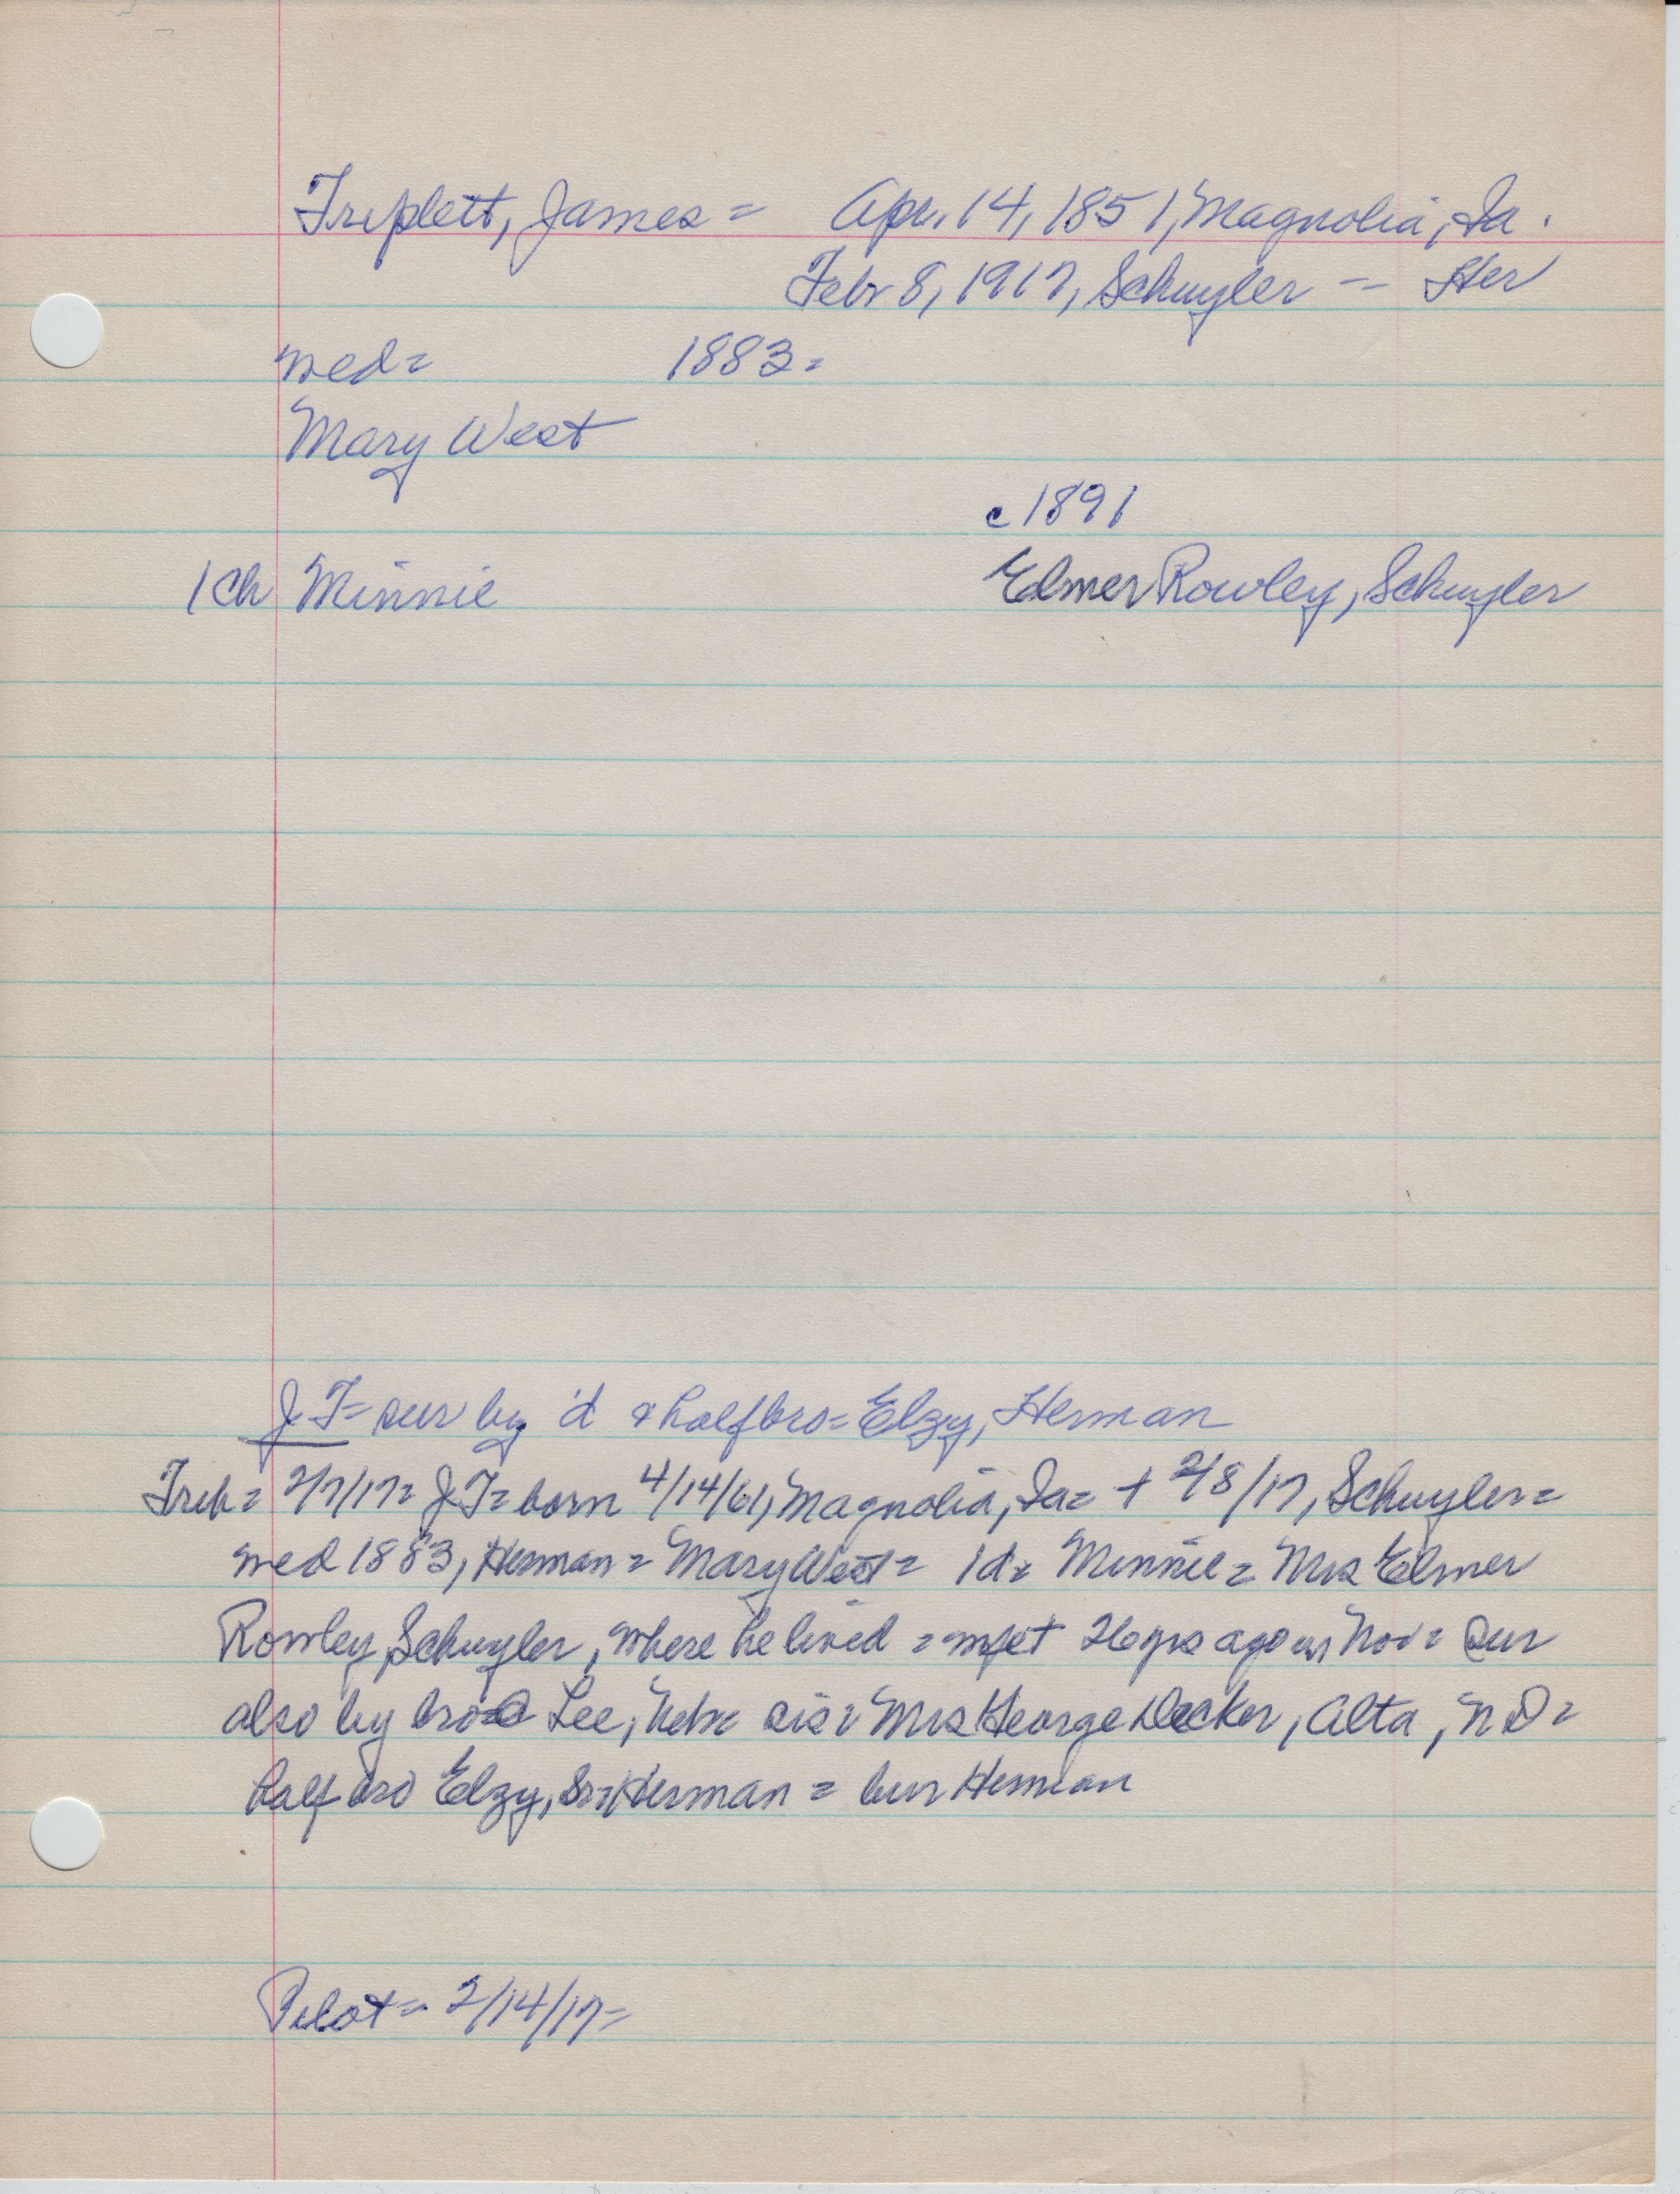 Triplett, James = Apr. 14, 1851, Magnolia, Ia.
Febr 8, 1917, Schuyler - Her
wed = 1883 =
Mary West
c 1891
1 ch Minnie Elmer Rowley, Schuyler
J T = sur by 1d & halfbro = Elzy, Herman
Trib = 2/7/17 = J T = born 4/14/61, Magnolia, Ia = + 2/8/17, Schuyler =
wed 1883, Herman = Mary West = 1d = Minnie = Mrs Elmer
Rowley, Schuyler, where he lived = 26 yrs ago Nov = sur
also by bro = Lee, Nebr = sis = Mrs George Decker, Alta, N D =
half bro Elzy, Sr = Herman = bur Herman
Pilot = 2/14/17 =